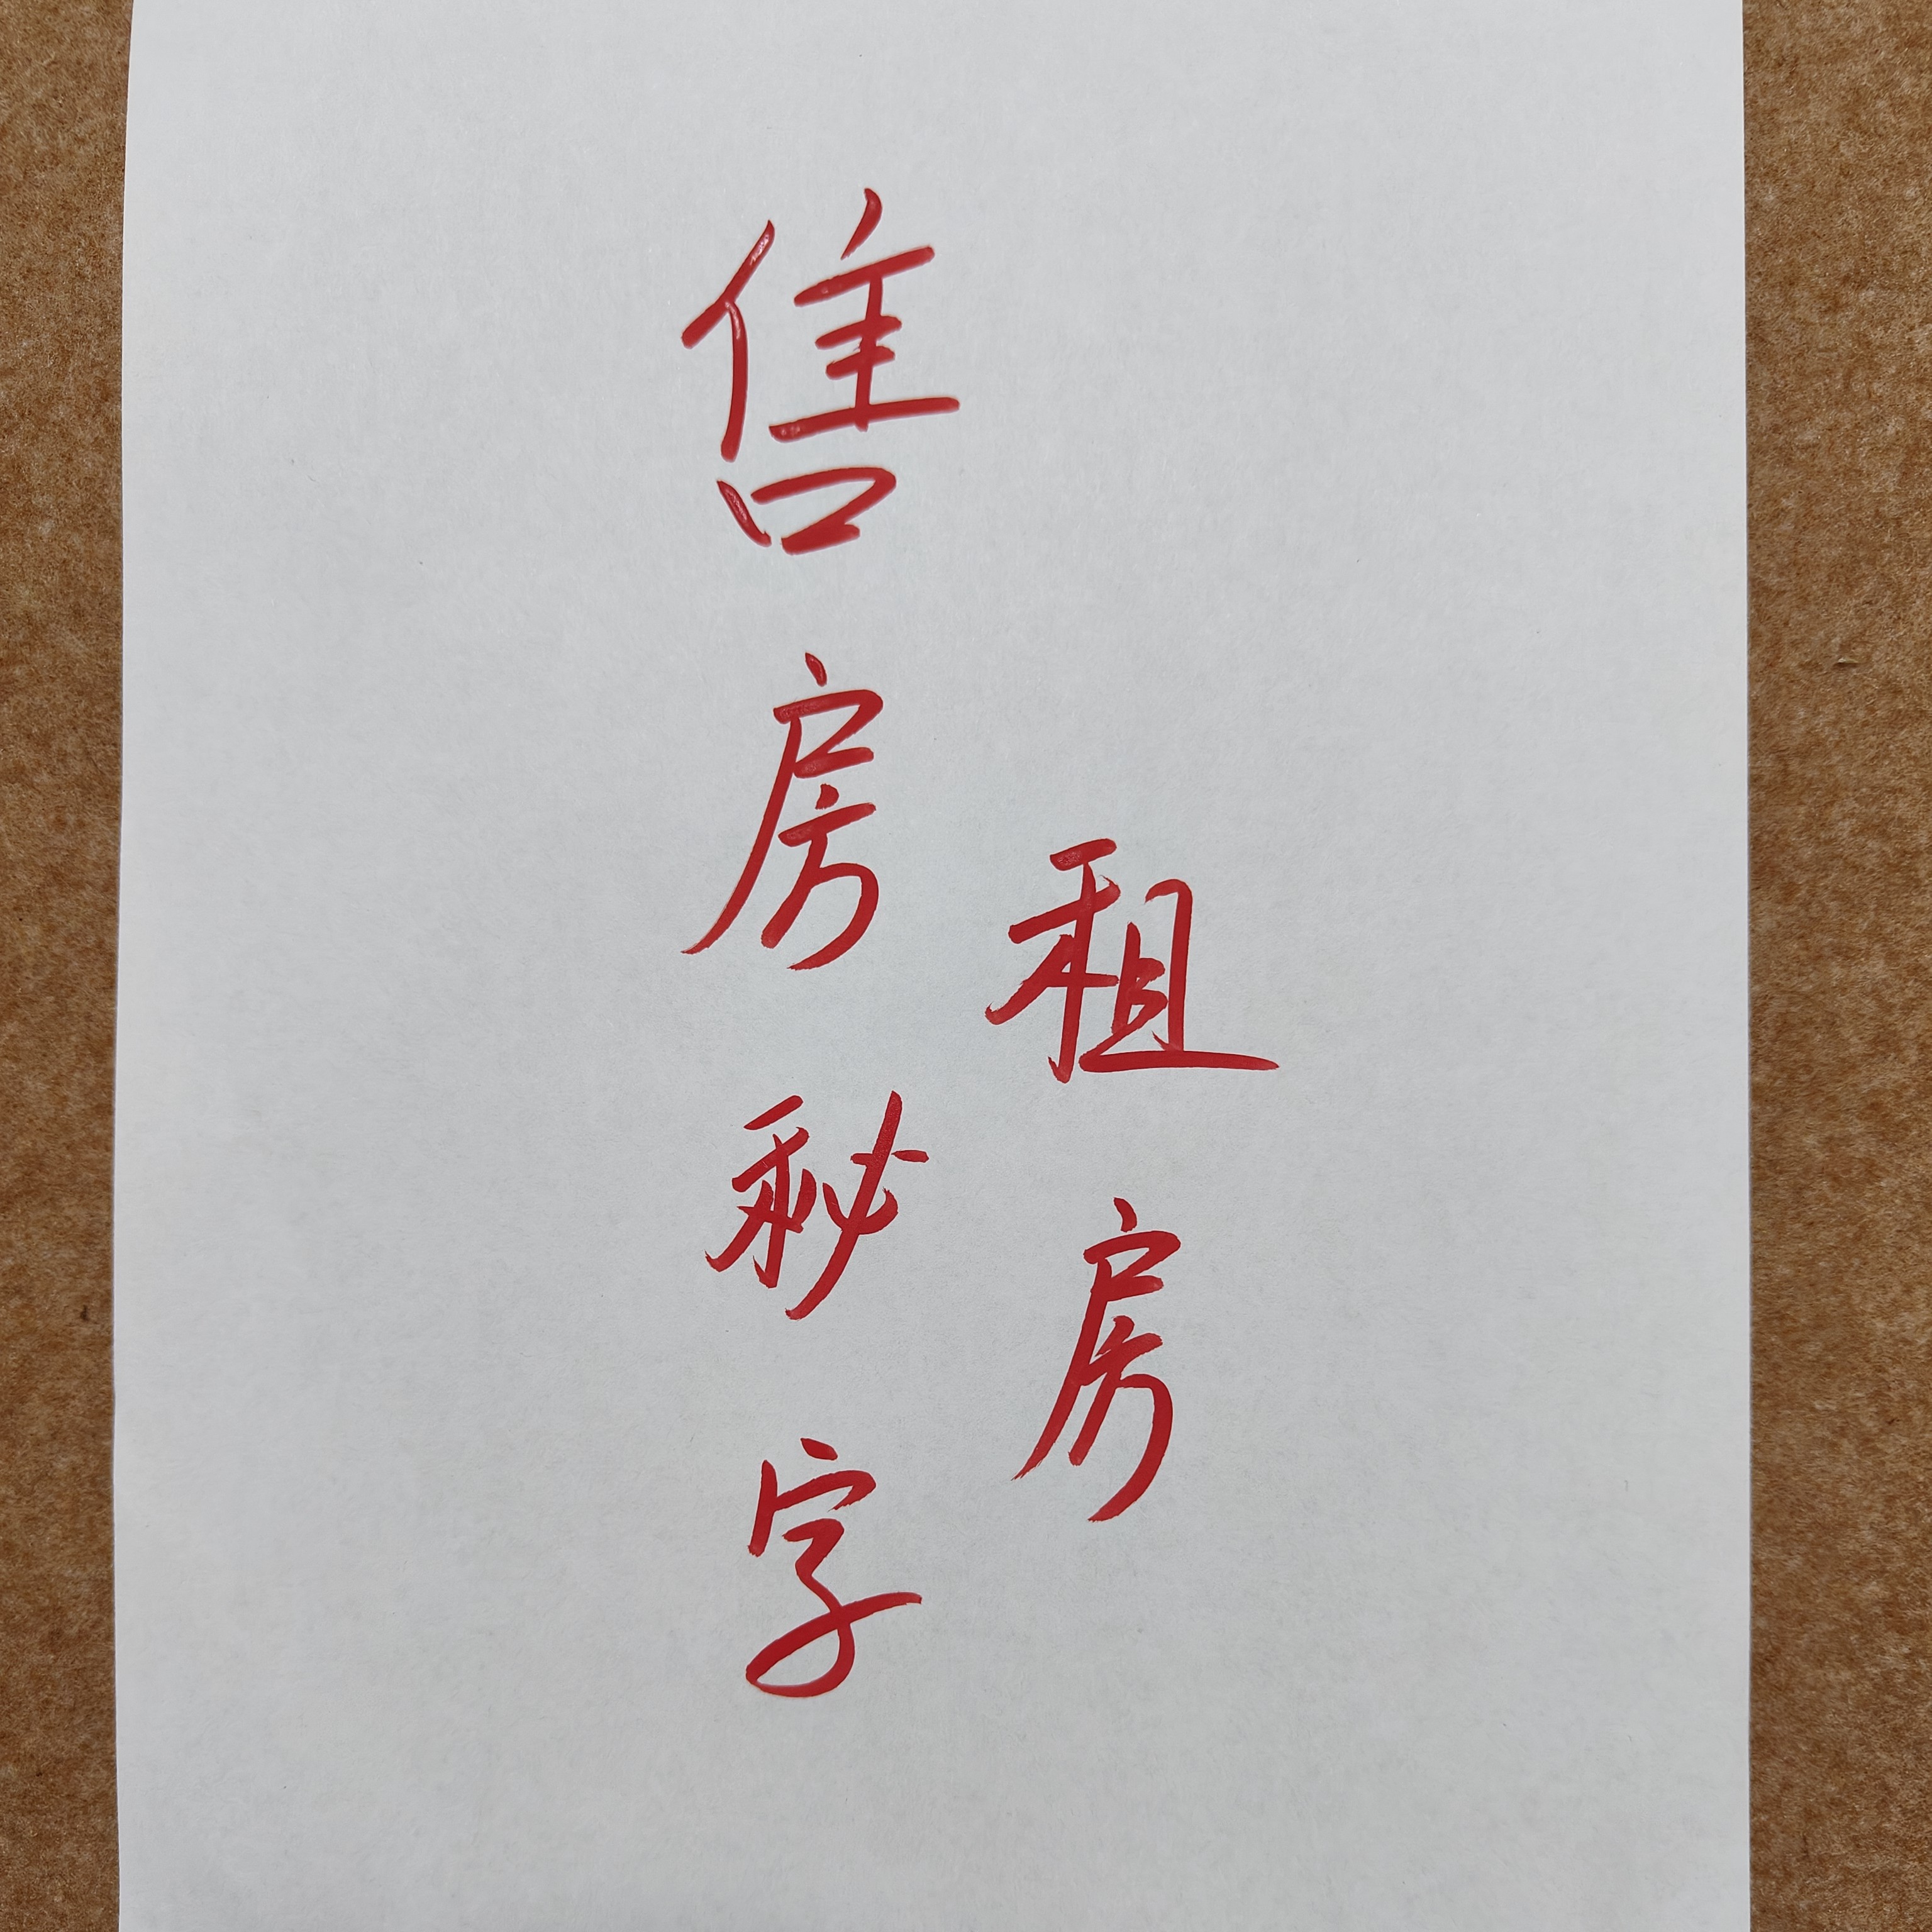 售房秘字
租房